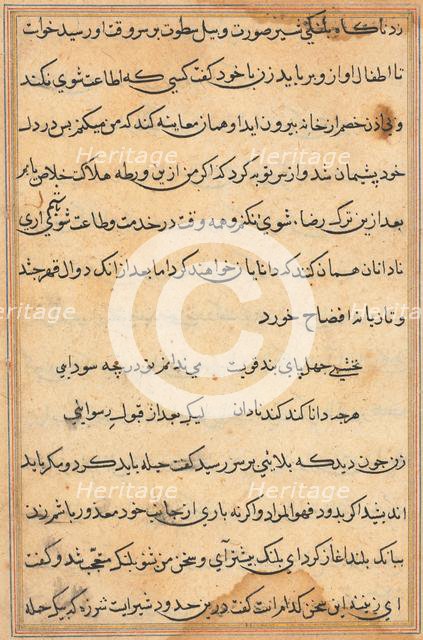 زد ناگاه پلنگی شیر صورت و پیل سطوت بر سر وقت او رسید خواست
تا اطفال او از و برباید زن با خود گفت کسی که اطاعت شوی نکند
و بی اذن خصم از خانه بیرون اید او همان معاینه کند که من میکنم پس در دل
خود پشیمان شد و از سر توبه کرد که اگر من ازین ورطه هلاکت خلاص یابم
بعد ازین ترک رضاء شوی نکنم و همه وقت در خدمت و طاعت شوی باشم آری
نادانان همان کنند که دانایان خواهند کرد اما بعد از انک دوال قهر چشد
و تازیانه افضاح خورد
نخشبی جهل پای بند قویست می ندانم بود درچه سودایی
هرچه دانا کند کند نادان لیک بعد از قبول رسوایی
زن چون دید که بلائی بر سر رسید گفت حیله باید کرد و مکر باید
اندیشید اگر بدو رفع فهو المراد و اگر نه باری از جانب خود معذور باشم زن
بانک بلند اغاز کرد ای پلنگ پیشتر آی و سخن من شنو پلنک متعجب شد و گفت
ای زن این سخن کدام است گفت درین حدود شیریست شرزه که بیک حمله
Heritage
Heritage
Heritage
Heritage